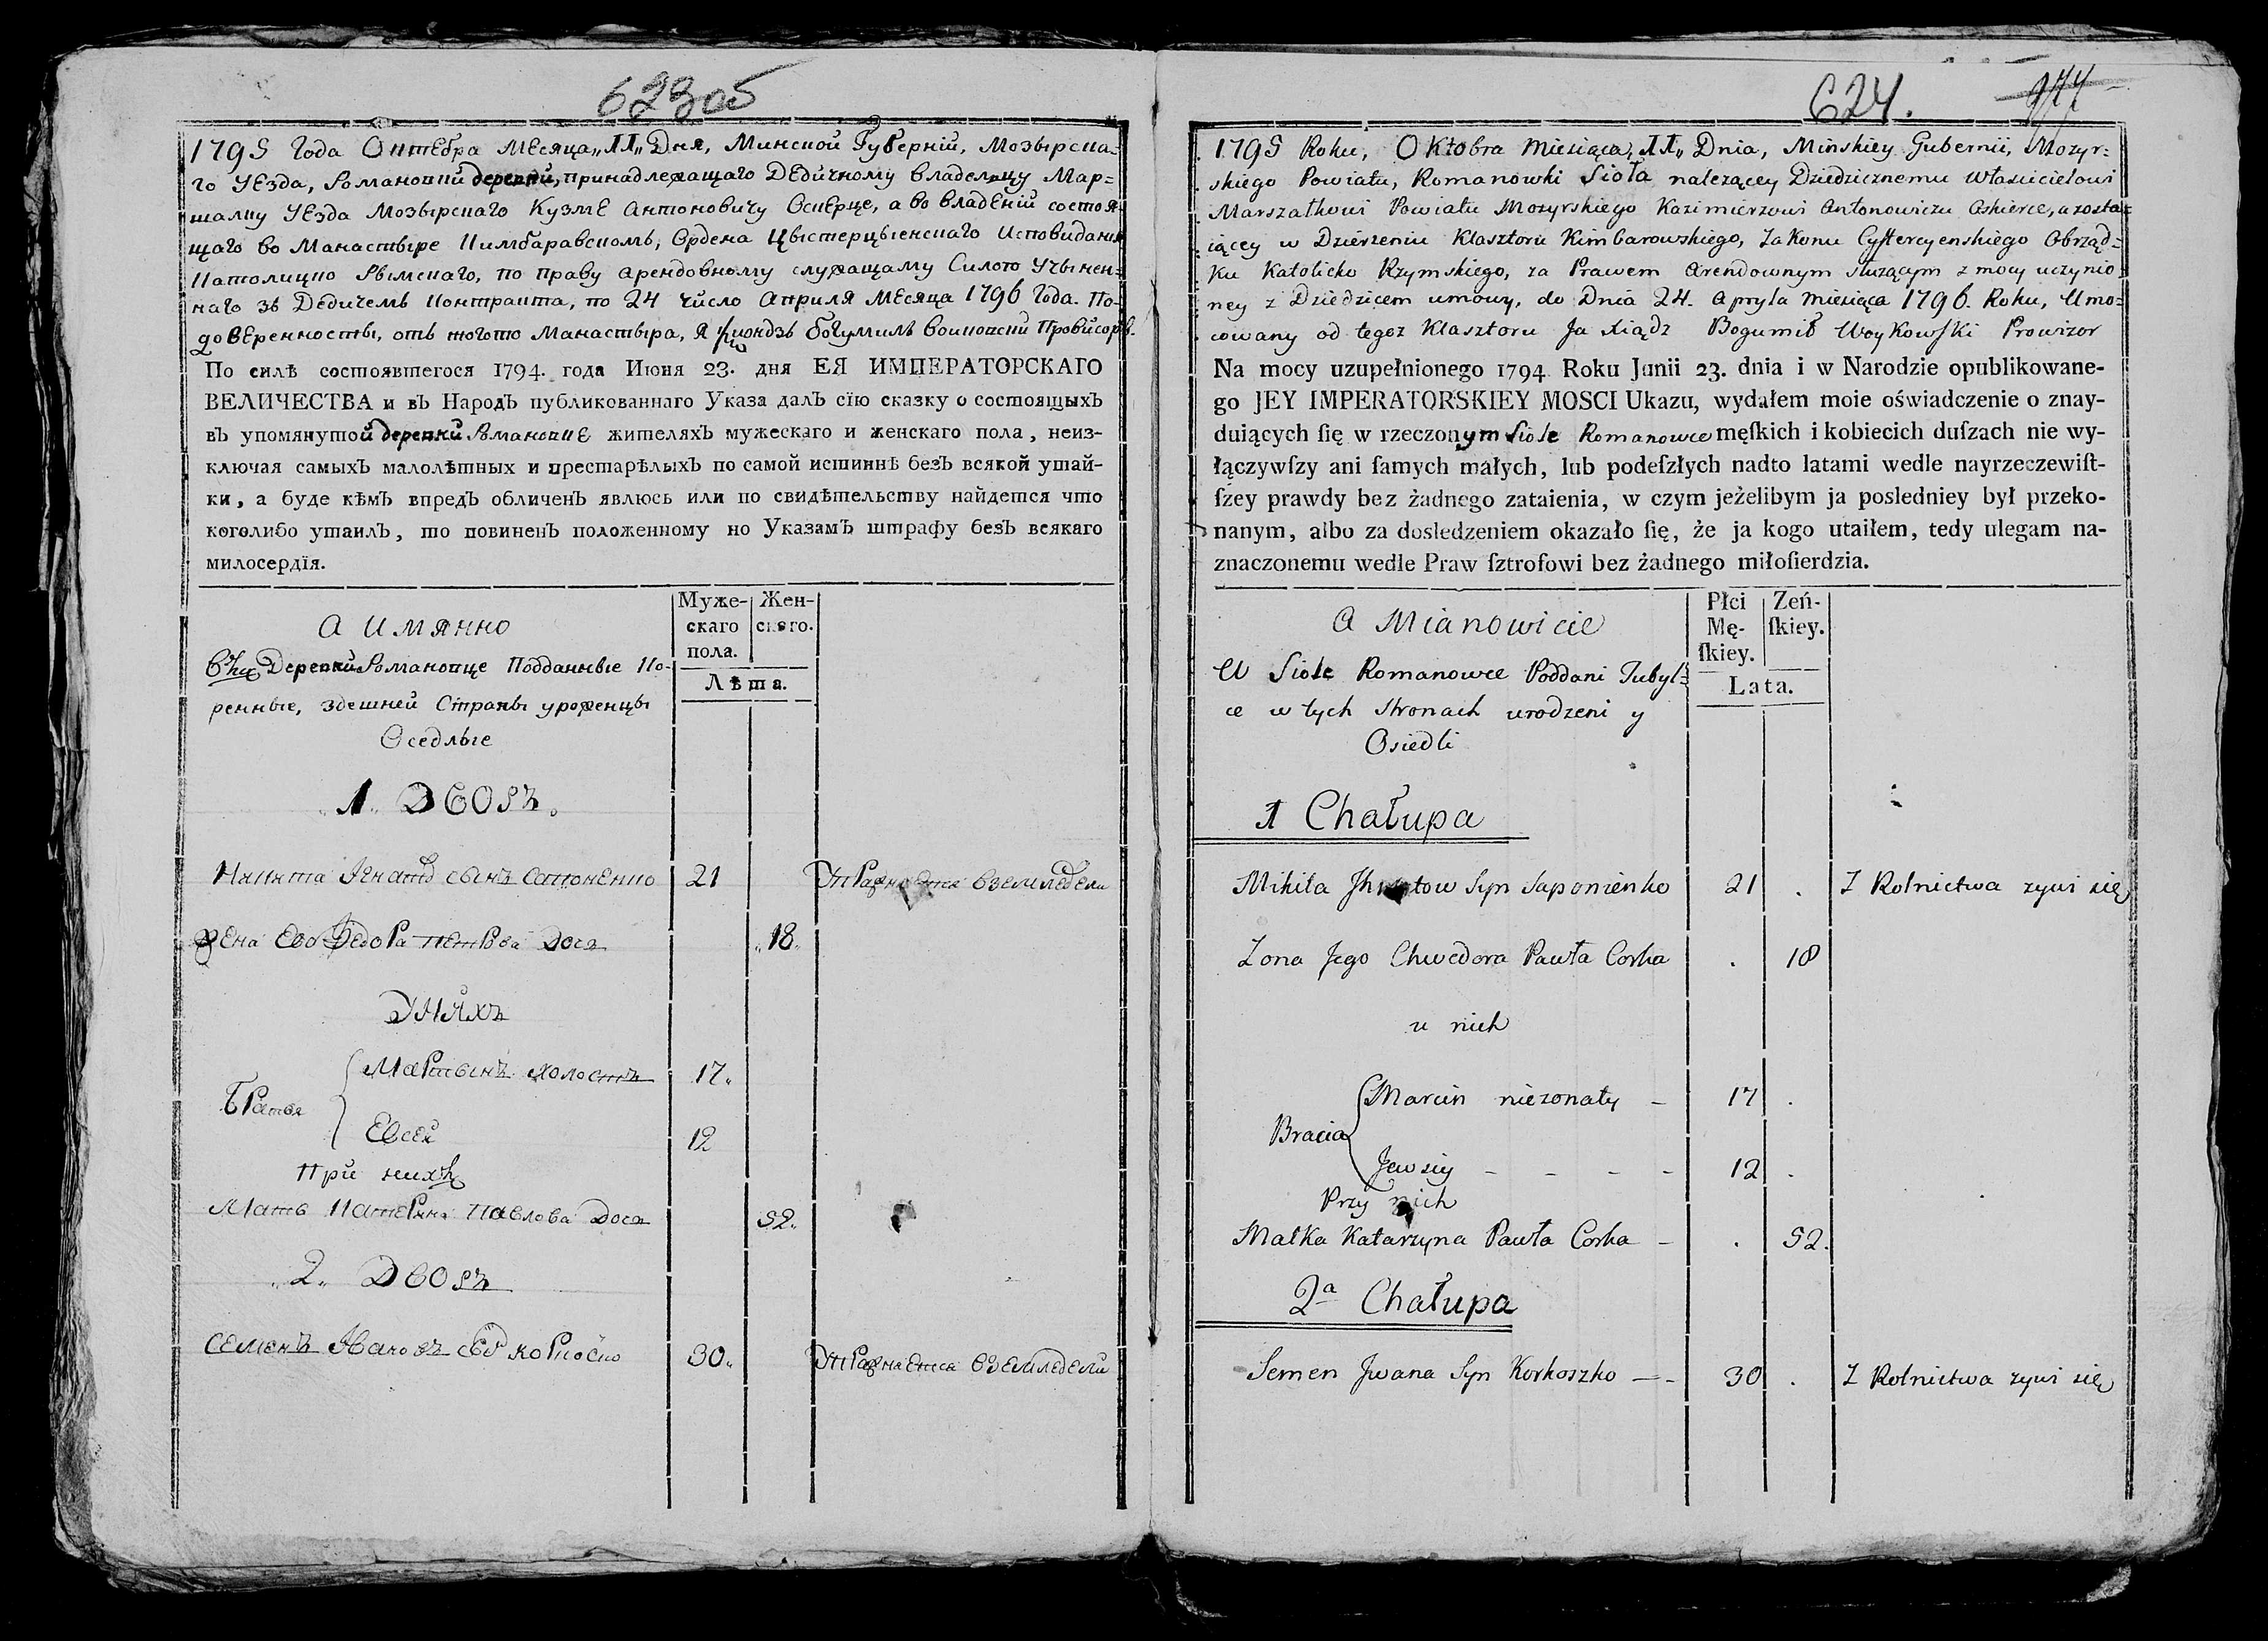 623об
1795 Года Октебра Месяца „11„ Дня, Минской Губерній, Мозырска-
го Уезда, Романовки деревни, принадлежащаго Дедичному Владелцу Мар=
шалку Уезда Мозырскаго Кузме Антоновичу Оскерце, а во владеній состоя=
щаго во Манастыре Кимбаравскомъ, Ордена Цыстерцыенскаго Исповиданія
Католицко Рымскаго, по праву арендовному служащаму Силою Учынен=
наго зъ Дедичемъ Контракта, по 24 число Априля Месяца 1796 Года. По-
доверенности, отъ тогото Манастыра, Я Ксіондзъ Богумилъ Войковски Провизоръ.
По силѣ состоявшегося 1794. года Июня 23. дня ЕЯ ИМПЕРАТОРСКАГО
ВЕЛИЧЕСТВА и въ Народъ публикованнаго Указа далъ сїю сказку о состоящыхъ
въ упомянутой деревни Романовке жителяхъ мужескаго и женскаго пола, неиз-
ключая самыхъ малолѣтныхъ и престарѣлыхъ по самой истиннѣ безъ всякой утай-
ки, а буде кѣмъ впредъ обличенъ явлюсь или по свидѣтельству найдется что
коголибо утаилъ, то повиненъ положенному по Указамъ штрафу безъ всякаго
милосердїя.
А имянно
Муже-
скаго
пола.
Жен-
скаго.
Лѣта.
Деревни Романовце Подданные Ко-
ренные, здешней Страны уроженцы
Оседлые
1. Дворъ.
Никита Игнатов сынъ Сапоненко 21 Упражнается в земледели
Жена Ево Федора Петрова Доч 18
У них
Братья
Мартынъ холостъ 17
Евсей 12
При нихъ
Мать Катерина Павлова Доч 52.
2. Дворъ
Семенъ Ивановъ Сын Коркоско 30 Упражнается в земледели
624. 977
1795 Roku, Oktobra Miesiąca, 11„ Dnia, Minskiey Gubernii, Mozyr=
skiego Powiatu, Romanowki Sioła nalezącey Dziedzicznemu Własicielowi
Marszałkowi Powiatu Mozyrskiego Kazimierzowi Antonowiczu Oskierce, a zosta=
iącey w Dzierzeniu Klasztoru Kimbarowskiego, Zakonu Cystercyenskiego Obrząd=
ku Katolicko Rzymskiego, za Prawem Arendownym słuzącym z mocy uczynio=
ney z Dziedzicem umowy, do Dnia 24. Apryla Miesiąca 1796. Roku, Umo=
cowany od tegoz Klasztoru Ja Xiądz Bogumił Woykowski Prowizor
Na mocy uzupełnionego 1794 Roku Junii 23. dnia i w Narodzie opublikowane-
go JEY IMPERATORSKIEY MOSCI Ukazu, wydałem moie oświadczenie o znay-
duiących ſię w rzeczonym Siole Romanowce męſkich i kobiecich duſzach nie wy-
łączywſzy ani ſamych małych, lub podeſzłych nadto latami wedle nayrzeczewiſt-
ſzey prawdy bez żadnego zataienia, w czym jeżelibym ja posledniey był przeko-
nanym, albo za dosledzeniem okazało ſię, że ja kogo utaiłem, tedy ulegam na-
znaczonemu wedle Praw ſztrofowi bez żadnego miłoſierdzia.
A Mianowicie
Płci
Mę-
ſkiey.
Zeń-
ſkiey.
Lata.
W Siole Romanowce Poddani Tubyl=
ce w tych Stronach urodzeni y
Osiedli
1 Chałupa
Mikita Syn Saponienko 21 . Z Rolnictwa zywi się
Zona Jego Chwedora Pawła Corka . 18
u nich
Bracia
Marcin niezonaty – 17 .
Jewsiy – – – – 12 .
Przy nich
Matka Katarzyna Pawła Corka – . 52.
2a Chałupa
Semen Jwana Syn Korkoszko — – 30 . Z Rolnictwa zywi się